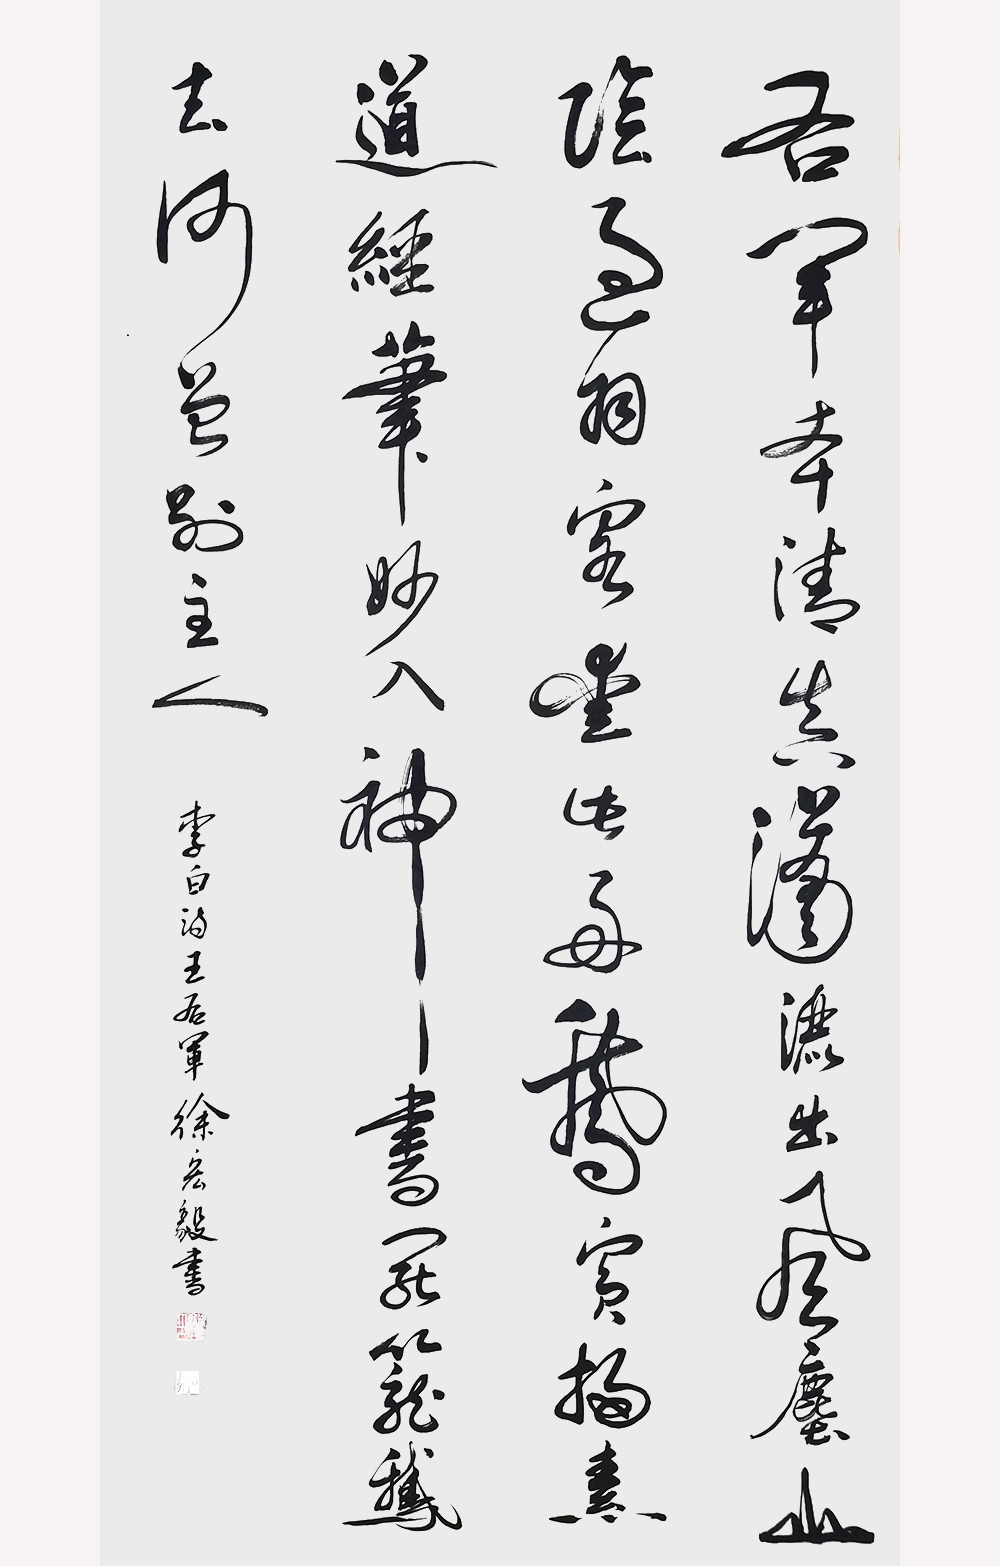 右軍本清真瀟灑出風塵山
陰過羽客愛此好鵝賓掃素
道經筆妙入神書罷籠鵝
去何曾別主人
李白詩王右軍徐宏毅書